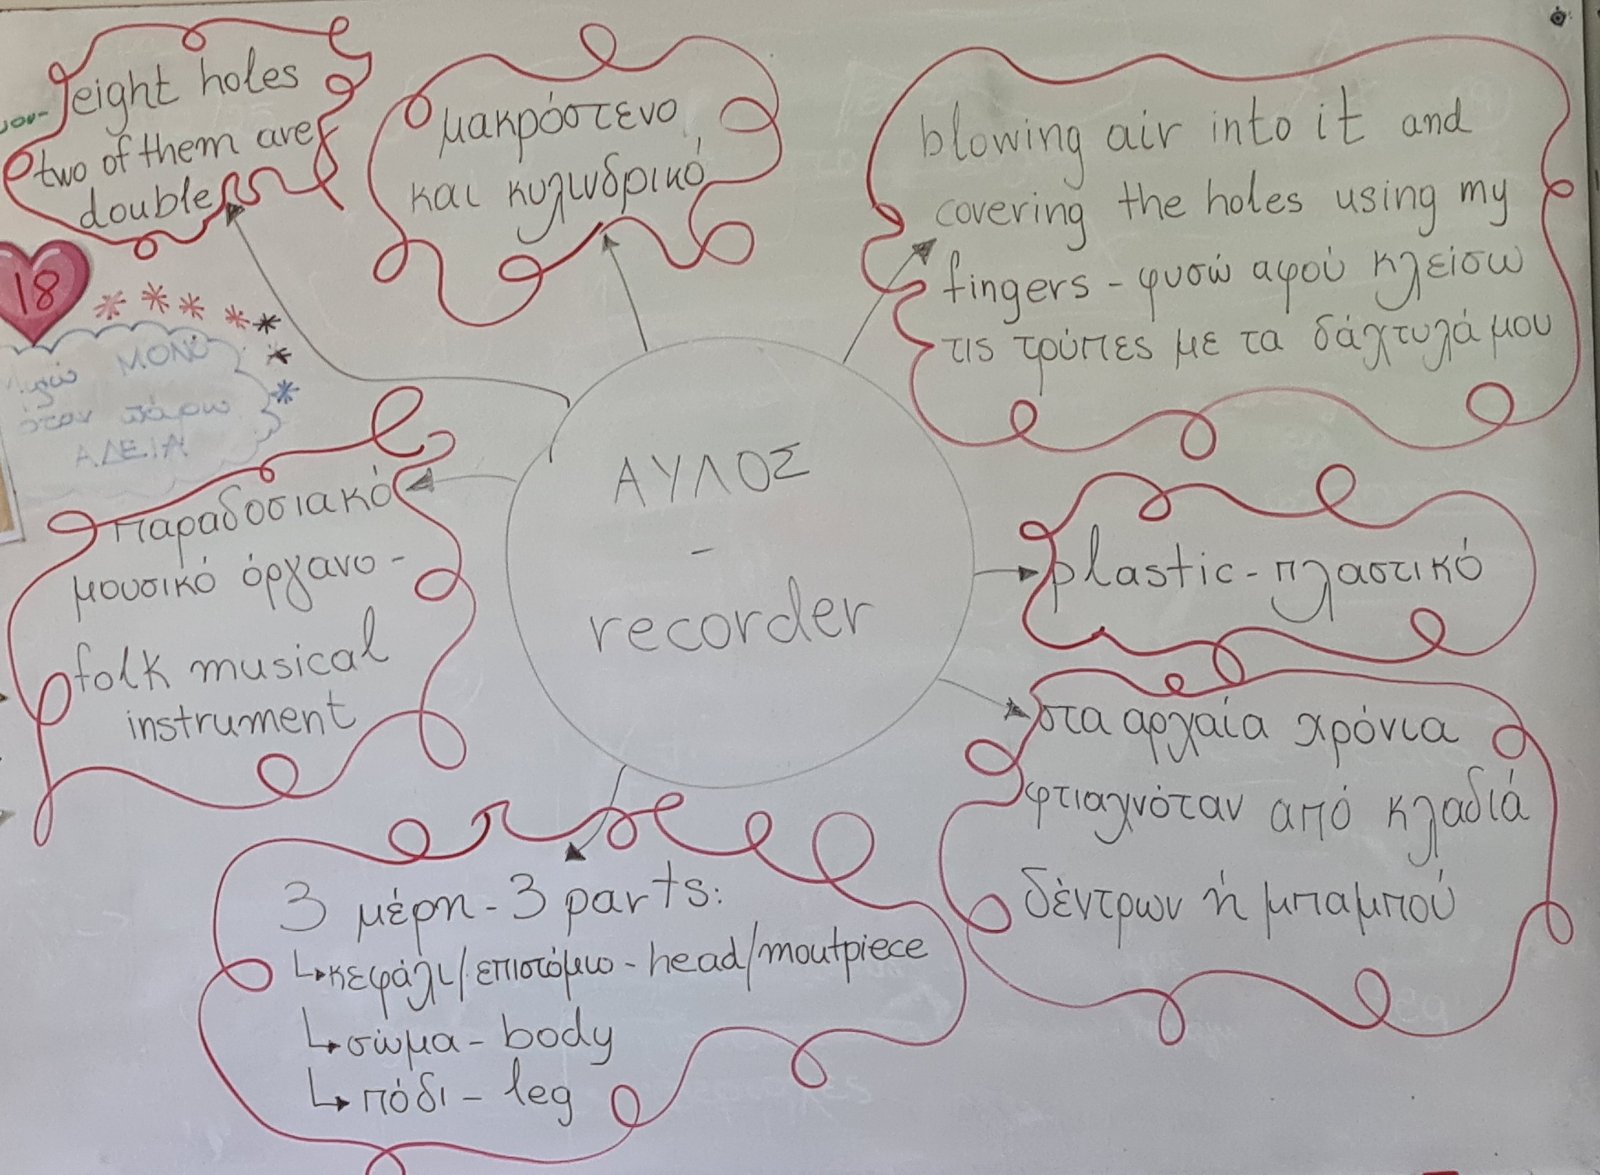 eight holes
two of them are
double
μακρόστενο
και κυλινδρικό
blowing air into it and
covering the holes using my
fingers - φυσώ αφού κλείσω
τις τρύπες με τα δάχτυλά μου
18
ΜΟΝΟ
όταν πάρω
ΑΔΕΙΑ
ΑΥΛΟΣ
-
recorder
παραδοσιακό
μουσικό όργανο -
folk musical
instrument
plastic - πλαστικό
στα αρχαία χρόνια
φτιαχνόταν από κλαδιά
δέντρων ή μπαμπού
3 μέρη - 3 parts:
↳κεφάλι/επιστόμιο - head/moutpiece
↳σώμα - body
↳πόδι - leg